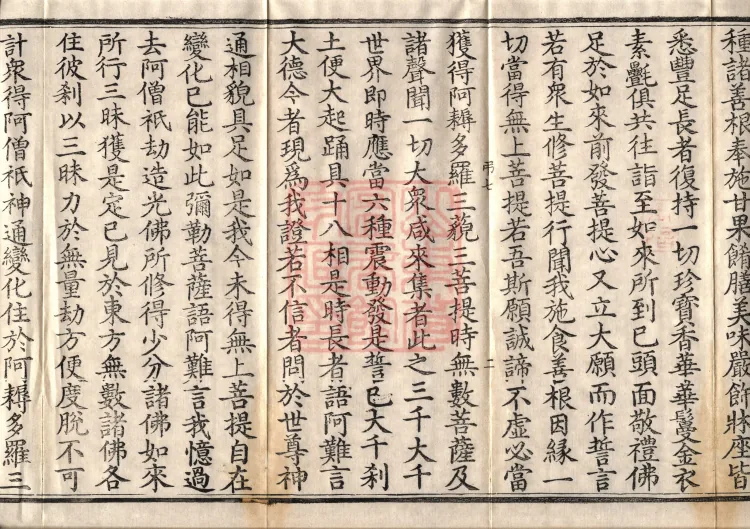 種諸善根奉施甘果餚膳美味嚴飾牀座皆
悉豐足長者復持一切珍寶香華華鬘金衣
素㲲俱共往詣至如來所到已頭面敬禮佛
足於如來前發菩提心又立大願而作誓言
若有衆生修菩提行聞我施食善根因緣一
切當得無上菩提若吾斯願誠諦不虛必當
弔七
二
獲得阿耨多羅三藐三菩提時無數菩薩及
諸聲聞一切大衆咸來集者此之三千大千
世界即時應當六種震動發是誓已大千剎
土便大起踊具十八相是時長者語阿難言
大德今者現爲我證若不信者問於世尊神
通相貌具足如是我今未得無上菩提自在
變化已能如此彌勒菩薩語阿難言我憶過
去阿僧祇劫造光佛所修得少分諸佛如來
所行三昧獲是定已見於東方無數諸佛各
住彼剎以三昧力於無量劫方便度脫不可
計衆得阿僧祇神通變化住於阿耨多羅三